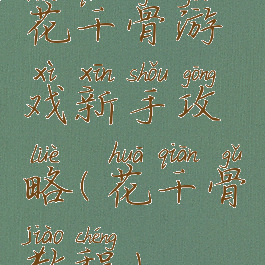 花千骨游
xì xīn shǒu gōng
戏新手攻
lüè huā qiān gǔ
略(花千骨
jiào chéng
教程)